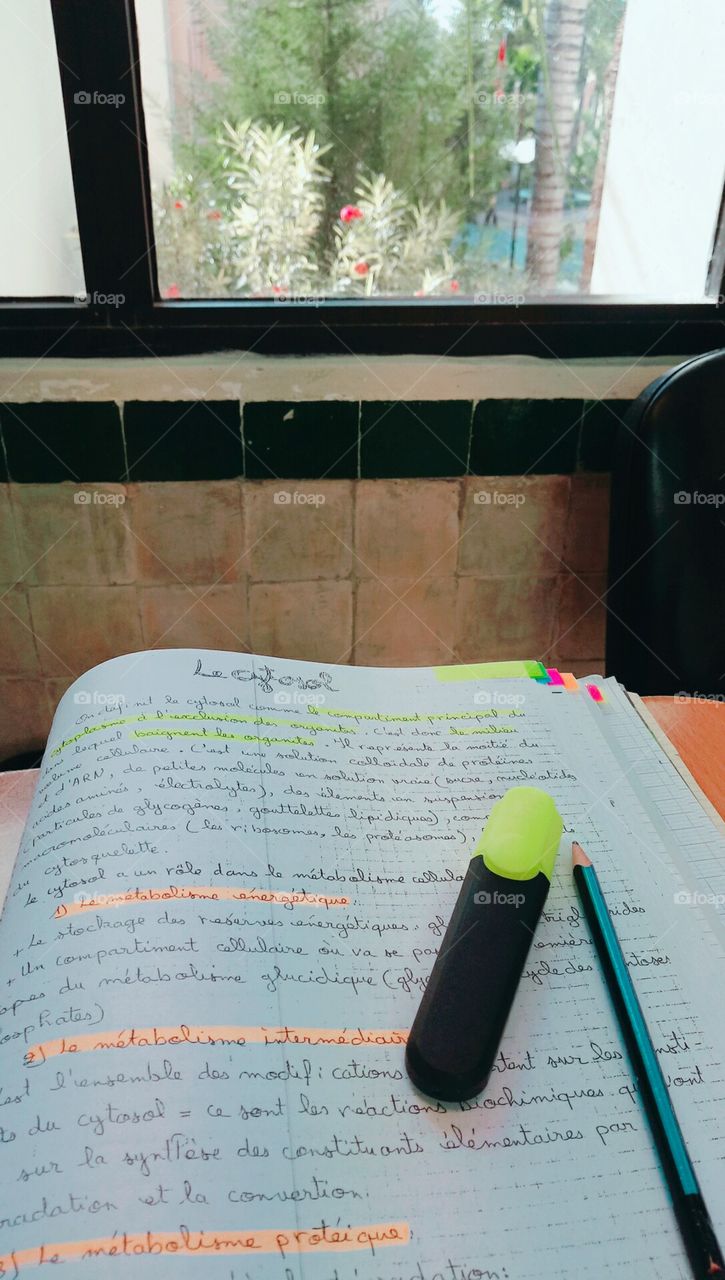 Le cytosol
On définit le cytosol comme le compartiment principal du
cytoplasme à l'exclusion des organites. C'est donc le milieu
dans lequel baignent les organites. Il représente la moitié du
volume cellulaire. C'est une solution colloïdale de protéines
et d'ARN, de petites molécules en solution vraie (sucre, nucléotides
acides aminés, électrolytes), des éléments en suspension
(particules de glycogènes, gouttelettes lipidiques),
macromoléculaires (les ribosomes, les protéasomes),
du cytosquelette.
Le cytosol a un rôle dans le métabolisme
1) Le métabolisme énergétique.
+ Le stockage des reserves énergétiques:
+ Un compartiment cellulaire où va se
du métabolisme glucidique (
2) Le métabolisme
l'ensemble des modifications sur les
du cytosol = ce sont les réactions biochimiques
sur la synthèse des constituants élémentaires par
et la convertion.
3) Le métabolisme protéique.